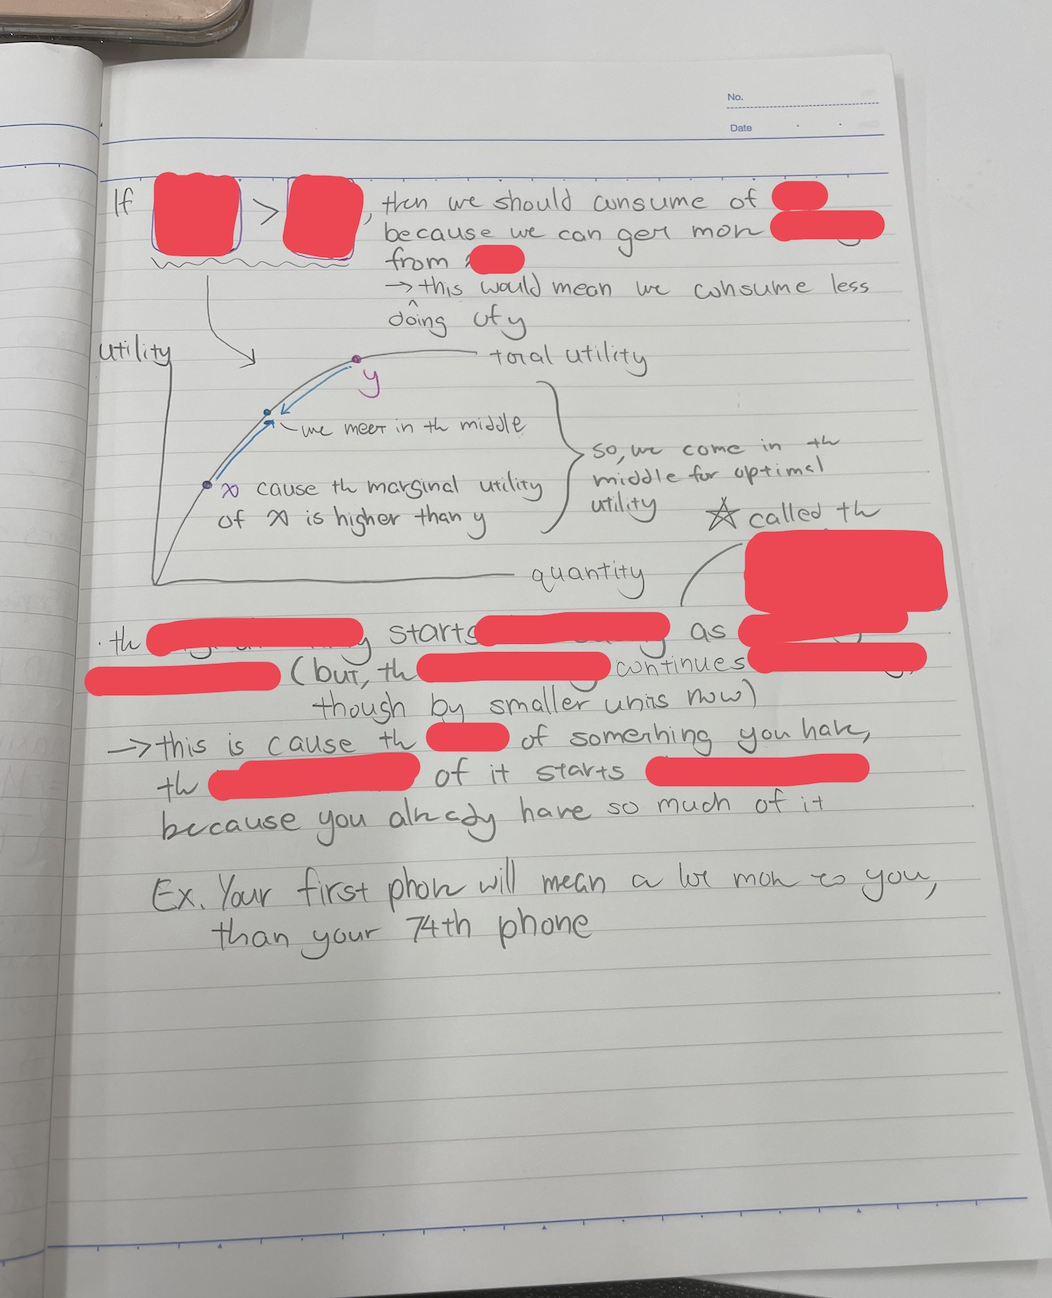 No.
Date
If > , then we should consume of
because we can get more
from
→ this would mean we consume less
doing
of y
utility
total utility
y
we meet in the middle
so, we come in the
middle for optimal
utility
x cause the marginal utility
of x is higher than y
☆ called the
quantity
· the starts as
(but, the continues
though by smaller units now)
→ this is cause the of something you have,
the of it starts
because you already have so much of it
Ex. Your first phone will mean a lot more to you,
than your 74th phone